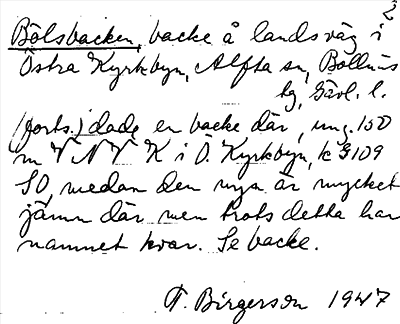 2
Bölsbacken, backe å landsväg i
Östra Kyrkbyn, Alfta sn, Bollnäs
tg, Gävl. l.
(forts.) dade en backe där, ung. 150
m V N V K i Ö. Kyrkbyn, k 3109
SO, medan den nya är mycket
jämn där men trots detta har
namnet kvar. Se backe.
F. Birgerson 1947